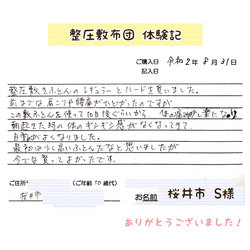 整圧敷布団 体験記
ご購入日 令和2年8月31日
記入日
整圧敷きふとんのレギュラーとハードを買いました。
前までは肩こりや腰痛がひどかったのですが
この敷ふとんを使って10日後ぐらいから 体の痛みが楽になり
朝起きた時の体のギシギシ感がなくなってきて
目覚めがよくなりました。
最初は少し高いふとんだなと思いましたが
今では買ってよかったです。
ご住所*
桜井市
(ご年齢 70歳代)
お名前 桜井市 S様
ありがとうございました!